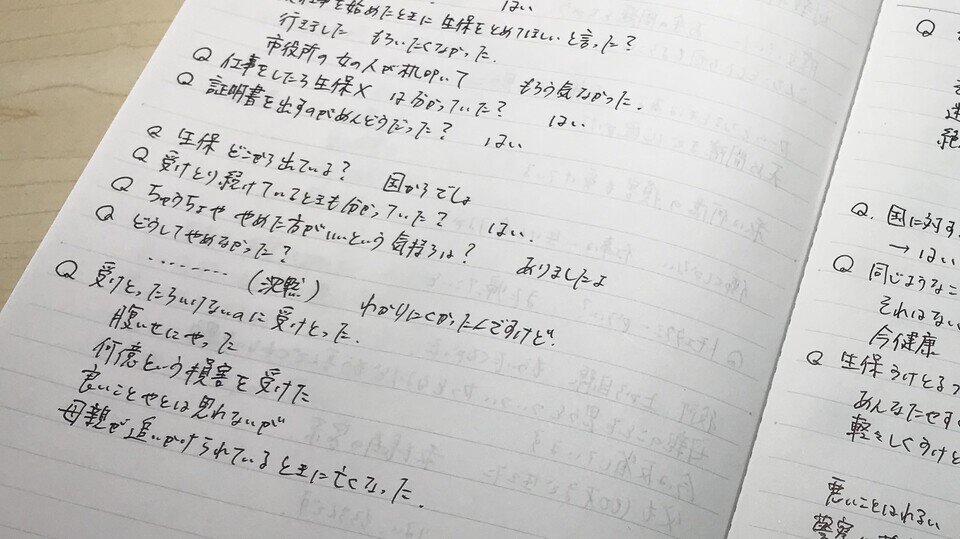 はい
仕事を始めたときに生保をとめてほしいと言った?
行きました もらいたくなかった.
市役所の女の人が机叩いて もらう気なかった.
Q 仕事をしたら生保X は分かっていた? はい
Q 証明書を出すのがめんどうだった? はい
Q 生保 どこから出ている? 国からでしょ
Q 受けとり続けているときも分かっていた? はい.
Q ちゅうちょや やめた方がいいという気持ちは? ありましたよ
Q どうしてやめなかった?
‥‥‥‥ (沈黙) わかりにくかったんですけど.
Q 受けとったらいけないのに受けとった.
腹いせにやった
何億という損害を受けた
良いことやとは思れないが
母親が追いかけられているときに亡くなった.
Q
Q. 国に対す
→ はい
Q 同じようなこ
それはない
今健康
Q 生保うけとる
あんなたやす
軽々しくうけと
悪いことは
警察